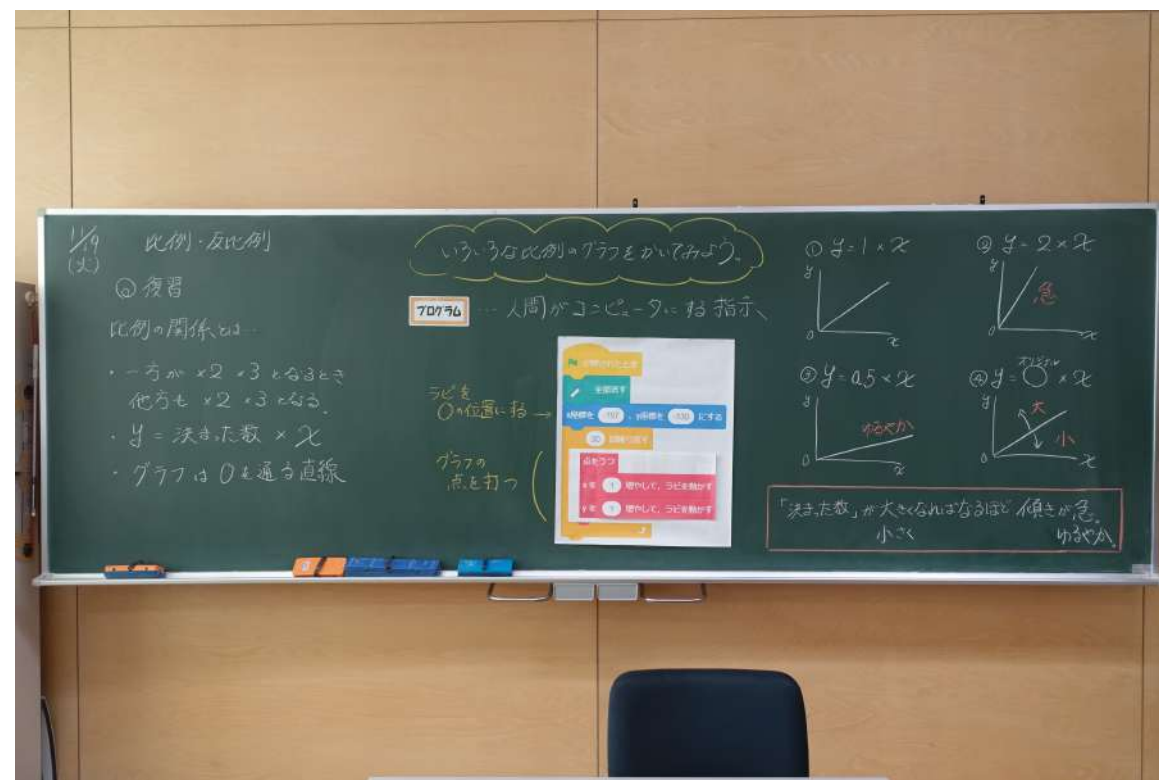 11/19
(火)
比例・反比例
◎ 復習
比例の関係とは…
・一方が ×2 ×3 となるとき
他方も ×2 ×3 となる。
・y = 決まった数 × x
・グラフは0を通る直線
いろいろな比例のグラフをかいてみよう。
プログラム … 人間がコンピュータにする指示、
ラビを
0の位置にする→
グラフの
点を打つ
が押されたとき
全部消す
x座標を 、y座標を にする
30 回繰り返す
点をうつ
xを 1 増やして、ラビを動かす
yを 1 増やして、ラビを動かす
① y=1×x
y
0
x
② y=2×x
y
急
0
x
③ y=0.5×x
y
ゆるやか
0
x
オリジナル
④ y=○×x
y
大
小
0
x
「決まった数」が大きくなればなるほど 傾きが急。
小さく ゆるやか。